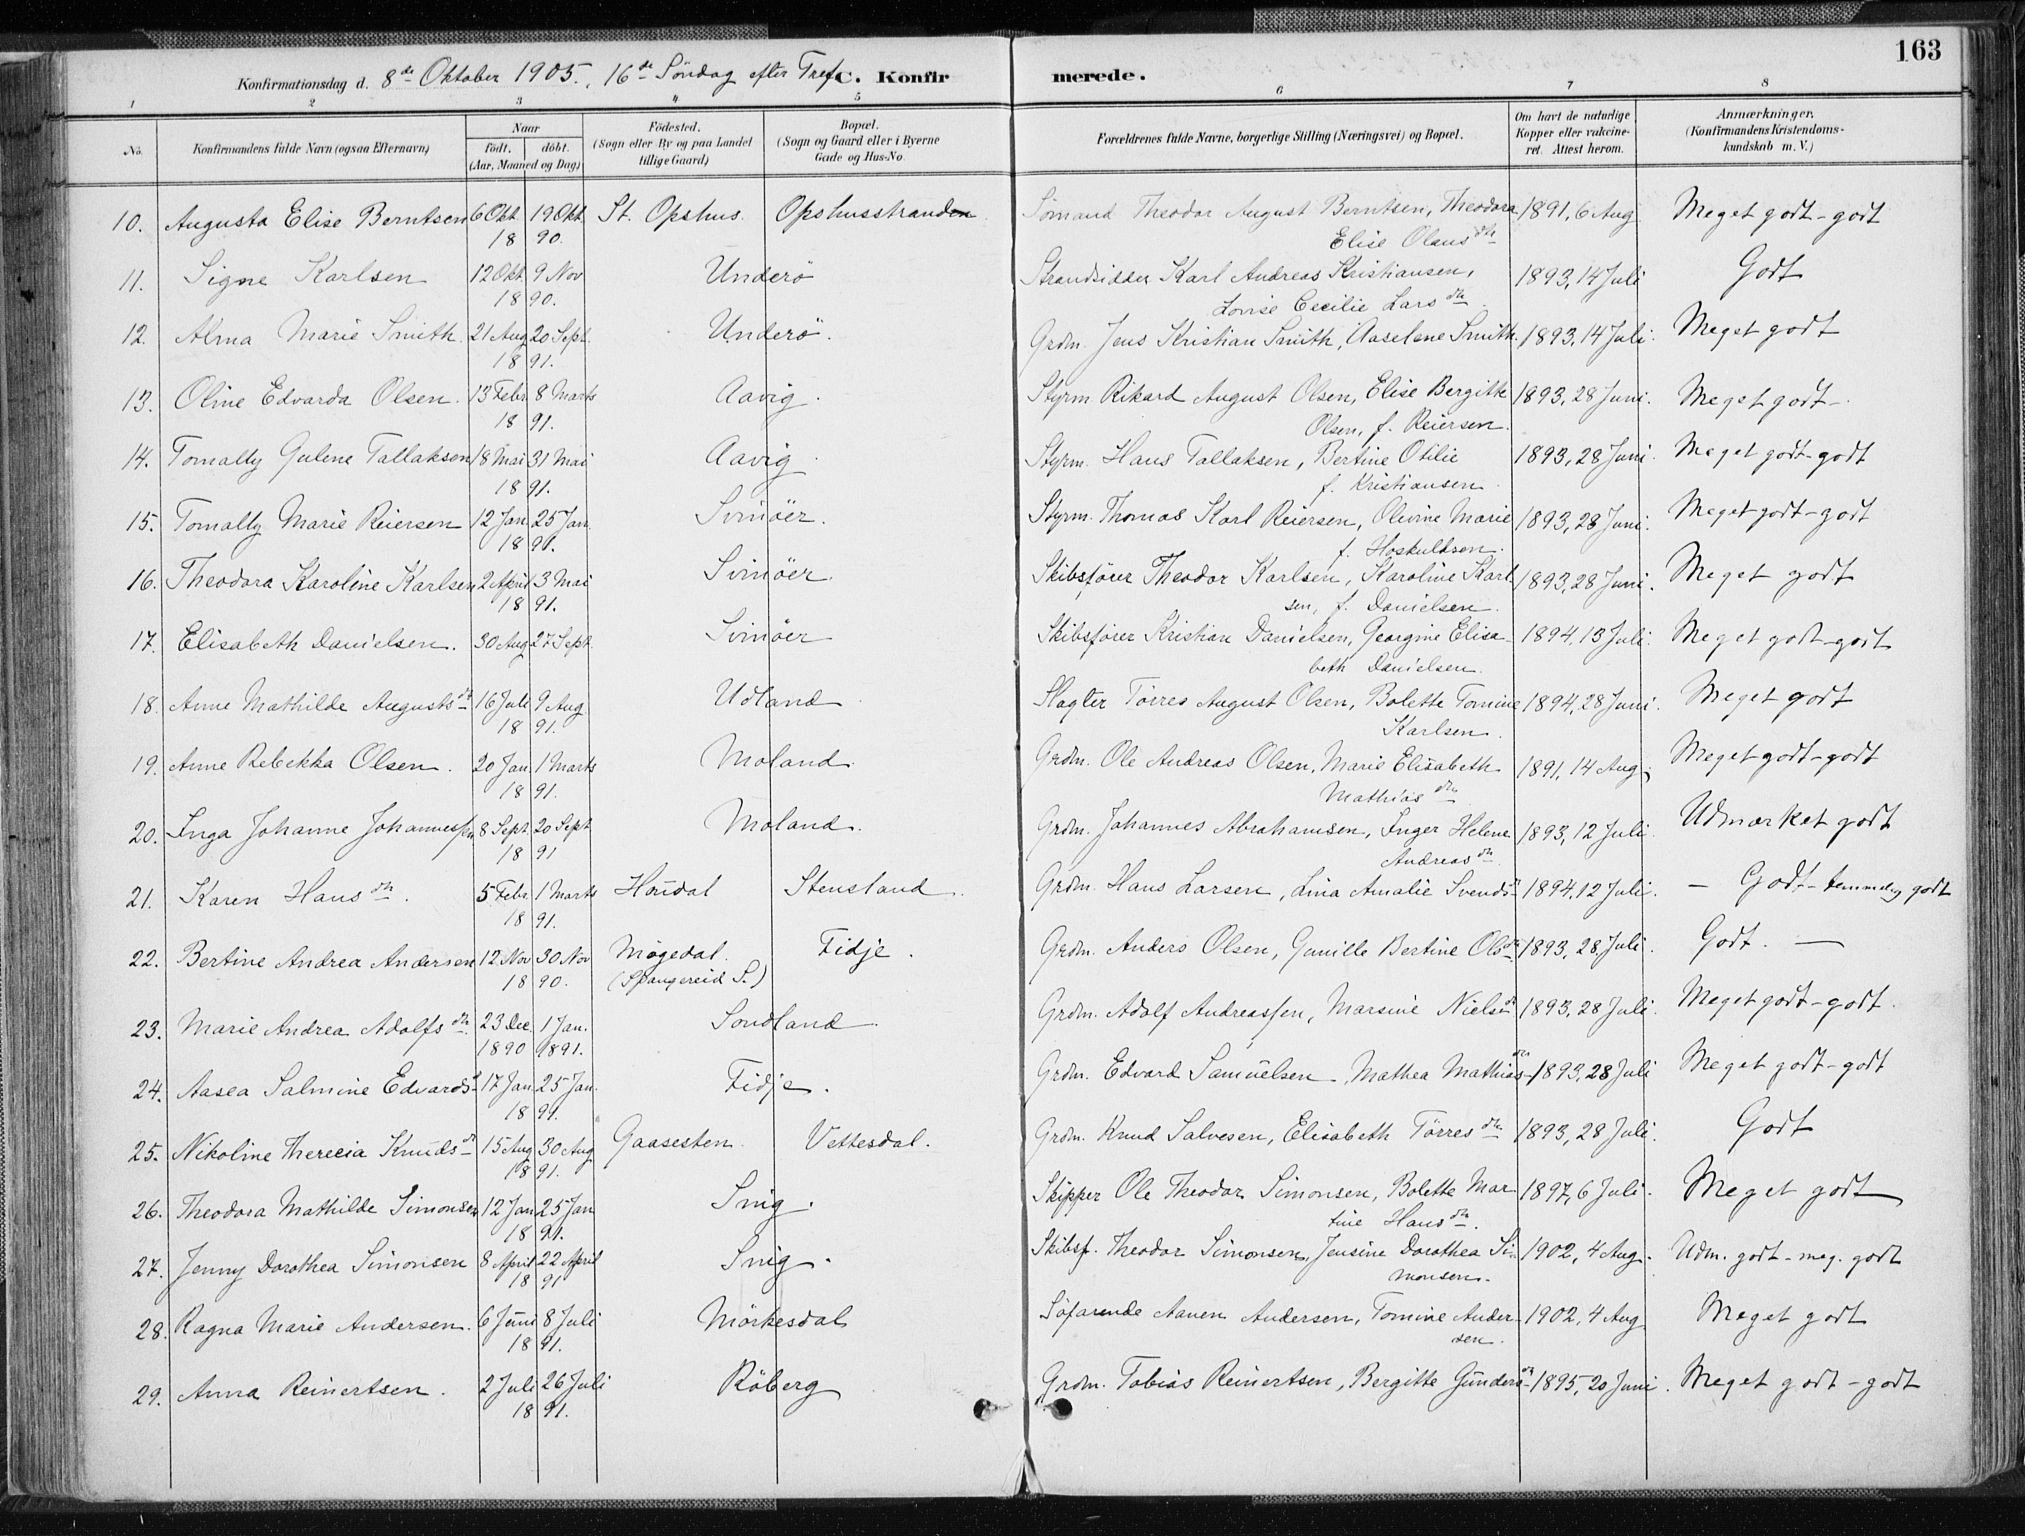 163
Konfirmationsdag d. 8de Oktober 1905, 16de Söndag efter Tref. C. Konfirmerede.
1 2 3 4 5 6 7 8
No. Konfirmandens fulde Navn (ogsaa Efternavn) Naar födt. döbt. (Aar, Maaned og Dag) Födested. (Sogn eller By og paa Landet tillige Gaard) Bopæl. (Sogn og Gaard eller i Byerne Gade og Hus-No. Forældrenes fulde Navne, borgerlige Stilling (Næringsvei) og Bopæl. Om havt de naturlige Kopper eller vakcineret. Attest herom. Anmærkninger. (Konfirmandens Kristendomskundskab m. V.)
10. Augusta Elise Berntsen 6 Okt. 19 Okt. St. Opshus. Opshusstranden Sømand Theodor August Berntsen, Theodora 1891, 6 Aug Meget godt - godt
18 90. Elise Olausdtr
11. Signe Karlsen 12 Okt. 9 Nov Underö Strandsidder Karl Andreas Kristiansen, 1893, 14 Juli Godt
18 90. Lovise Cecilie Larsdtr
12. Alma Marie Smith 21 Aug 20 Sept. Underö. Grdm. Jens Kristian Smith, Aaselene Smith 1893, 14 Juli. Meget godt
18 91.
13. Oline Edvarda Olsen. 13 Febr 8 Marts Aavig. Styrm Rikard August Olsen, Elise Bergitte 1893, 28 Juni. Meget godt -
18 91. Olsen, f. Reiersen.
14. Tomally Gulene Tallaksen 18 Mai 31 Mai Aavig. Styrm. Hans Tallaksen, Bertine Otilie 1893, 28 Juni. Meget godt - godt
18 91. f. Kristiansen
15. Tomally Marie Reiersen 12 Jan. 25 Jan. Svinöer. Styrm. Thomas Karl Reiersen, Olivine Marie 1893, 28 Juni. Meget godt - godt
18 91. f. Hoskuldsen.
16. Theodora Karoline Karlsen 2 April 3 Mai Svinöer. Skibsfører Theodor Karlsen, Karoline Karl- 1893, 28 Juni. Meget godt
18 91. sen, f. Danielsen.
17. Elisabeth Danielsen. 30 Aug 27 Sept. Svinöer Skibsfører Kristian Danielsen, Georgine Elisa- 1894, 13 Juli. Meget godt - godt
beth Danielsen.
18. Anne Mathilde Augustsdtr 16 Juli 9 Aug Udland Slagter Tørres August Olsen, Bolette Tomine 1894, 28 Juni. Meget godt
18 91. Karlsen.
19. Anne Rebekka Olsen. 20 Jan. 1 Marts Moland. Grdm. Ole Andreas Olsen, Marie Elisabeth 1891, 14 Aug. Meget godt - godt
18 91. Mathiasdtr
20. Inga Johanne Johannessen 8 Sept. 20 Sept Moland. Grdm. Johannes Abrahamsen, Inger Helene 1893, 12 Juli. Udmærket godt
18 91 Andreasdtr.
21. Karen Hansdtr. 5 Febr. 1 Marts Houdal Stensland. Grdm. Hans Larsen, Lina Amalie Svendsdtr 1894, 12 Juli. - Godt - temmelig godt
18 91.
22. Bertine Andrea Andersen 12 Nov 30 Nov Møgedal. Fidje. Grdm. Anders Olsen, Gunille Bertine Olsdtr 1893, 28 Juli. Godt. -
18 90. (Spangereid S.)
23. Marie Andrea Adolfsdtr. 23 Dec. 1 Jan. Sondland. Grdm. Adolf Andreassen, Marsine Nielsdtr 1893, 28 Juli. Meget godt - godt.
1890 1891.
24. Aasea Salmine Edvardsdtr 17 Jan. 25 Jan. Fidje. Grdm. Edvard Samuelsen, Mathea Mathiasdtr 1893, 28 Juli Meget godt - godt
18 91.
25. Nikoline Therecia Knudsdtr 15 Aug 30 Aug Gaasesten. Vettesdal. Grdm. Knud Salvesen, Elisabeth Törresdtr 1893, 28 Juli. Godt
18 91.
26. Theodora Mathilde Simonsen 12 Jan 25 Jan Snig. Skipper Ole Theodor Simonsen, Bolette Mar- 1897, 6 Juli. Meget godt
18 91. tine Hansdtr.
27. Jenny Dorothea Simonsen 8 April 22 April Snig. Skibsf. Theodor Simonsen, Jensine Dorothea Si- 1902, 4 Aug. Udm. godt - meg. godt
18 91 monsen.
28. Ragna Marie Andersen. 6 Juni 8 Juli Mörkesdal Söfarende Aanen Andersen, Tomine Ander- 1902, 4 Aug Meget godt
18 91. sen.
29. Anna Reinertsen. 2 Juli 26 Juli Röberg Grdm. Tobias Reinertsen, Bergitte Gundersdtr 1895, 20 Juni. Meget godt - godt
18 91.